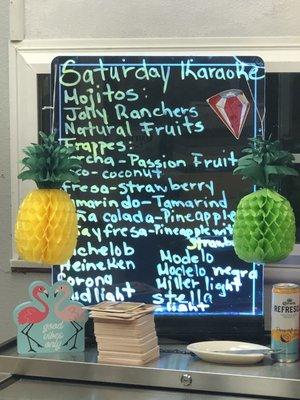 Saturday Karaoke
Mojitos:
Jolly Ranchers
Natural Fruits
Frappes:
Parcha-Passion Fruit
Coco-coconut
Fresa-Strawberry
Tamarindo-Tamarind
Piña colada-Pineapple
Piña y fresa-Pineapple with
Strawberry
Michelob
Heineken
Corona
Bud light
Modelo
Modelo negra
Miller light
Stella
light
good
vibes
only
CORONA
REFRESCA